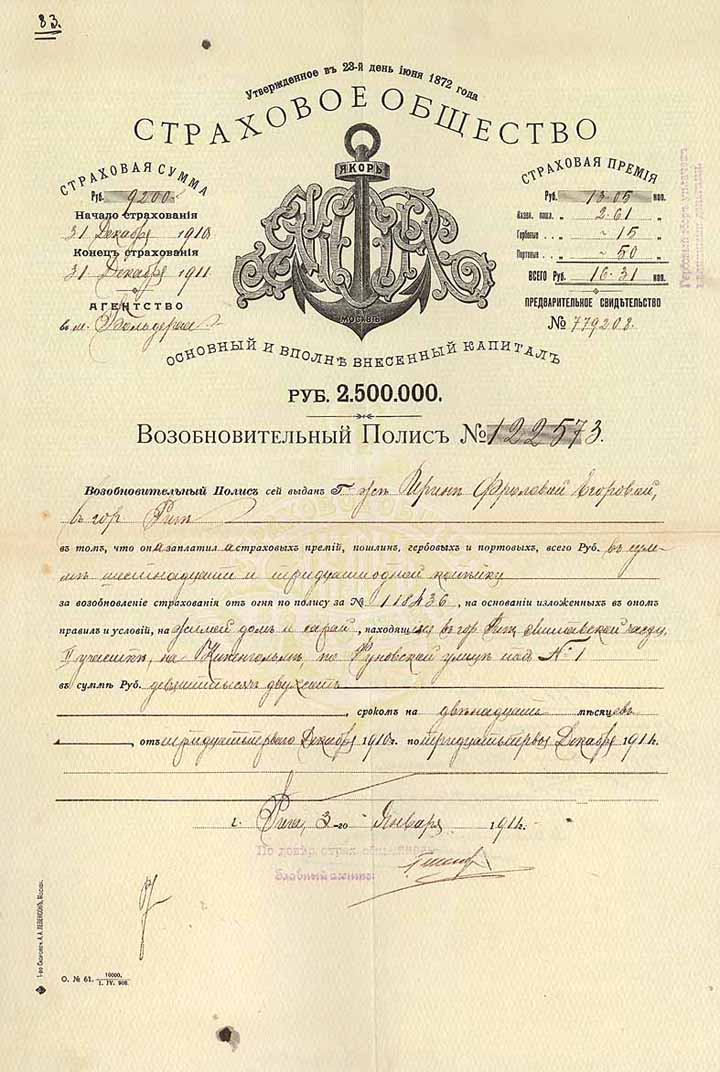 83.
Утвержденное въ 23-й день іюня 1872 года
СТРАХОВОЕ ОБЩЕСТВО
ЯКОРЬ
МОСКВѢ
СТРАХОВАЯ СУММА
Руб. 9200
Начало страхованія
31 Декабря 1910
Конецъ страхованія
31 Декабря 1911
АГЕНТСТВО
въ м.
СТРАХОВАЯ ПРЕМІЯ
Руб. 13.05 коп.
Казен. пошл. „ 2.61 „
Гербовые „ 15 „
Портовые „ 50 „
ВСЕГО Руб. 16.31 коп.
ПРЕДВАРИТЕЛЬНОЕ СВИДѢТЕЛЬСТВО
№ 779208.
Гербовый сборъ уплаченъ
ОСНОВНЫЙ И ВПОЛНѢ ВНЕСЕННЫЙ КАПИТАЛЪ
РУБ. 2.500.000.
ВОЗОБНОВИТЕЛЬНЫЙ ПОЛИСЪ № 122573.
Возобновительный Полисъ сей выданъ Г Фроловой Егоровой,
въ гор Ригѣ
въ томъ, что она заплатила страховыхъ премій, пошлинъ, гербовыхъ и портовыхъ, всего Руб. въ сум-
мѣ шестнадцати и тридцатиодной копѣйки
за возобновленіе страхованія отъ огня по полису за № 118436, на основаніи изложенныхъ въ ономъ
правилъ и условій, на жилой домъ и сарай, находящіяся въ гор Ригѣ, Митавской части,
II участкѣ, на по улицѣ под № 1
въ суммѣ Руб. девятьтысячъ двухсотъ
, срокомъ на двѣнадцать мѣсяцевъ
, отъ тридцатьперваго Декабря 1910г. по тридцатьпервое Декабря 1911г.
г. Рига, 3-го Января 1911г.
По довѣр. страх. общ.
Главный агентъ
1-во Скоропеч. А. А. ЛЕВЕНСОНЪ, Москва.
О. № 61. 10000. 1. IV. 908.